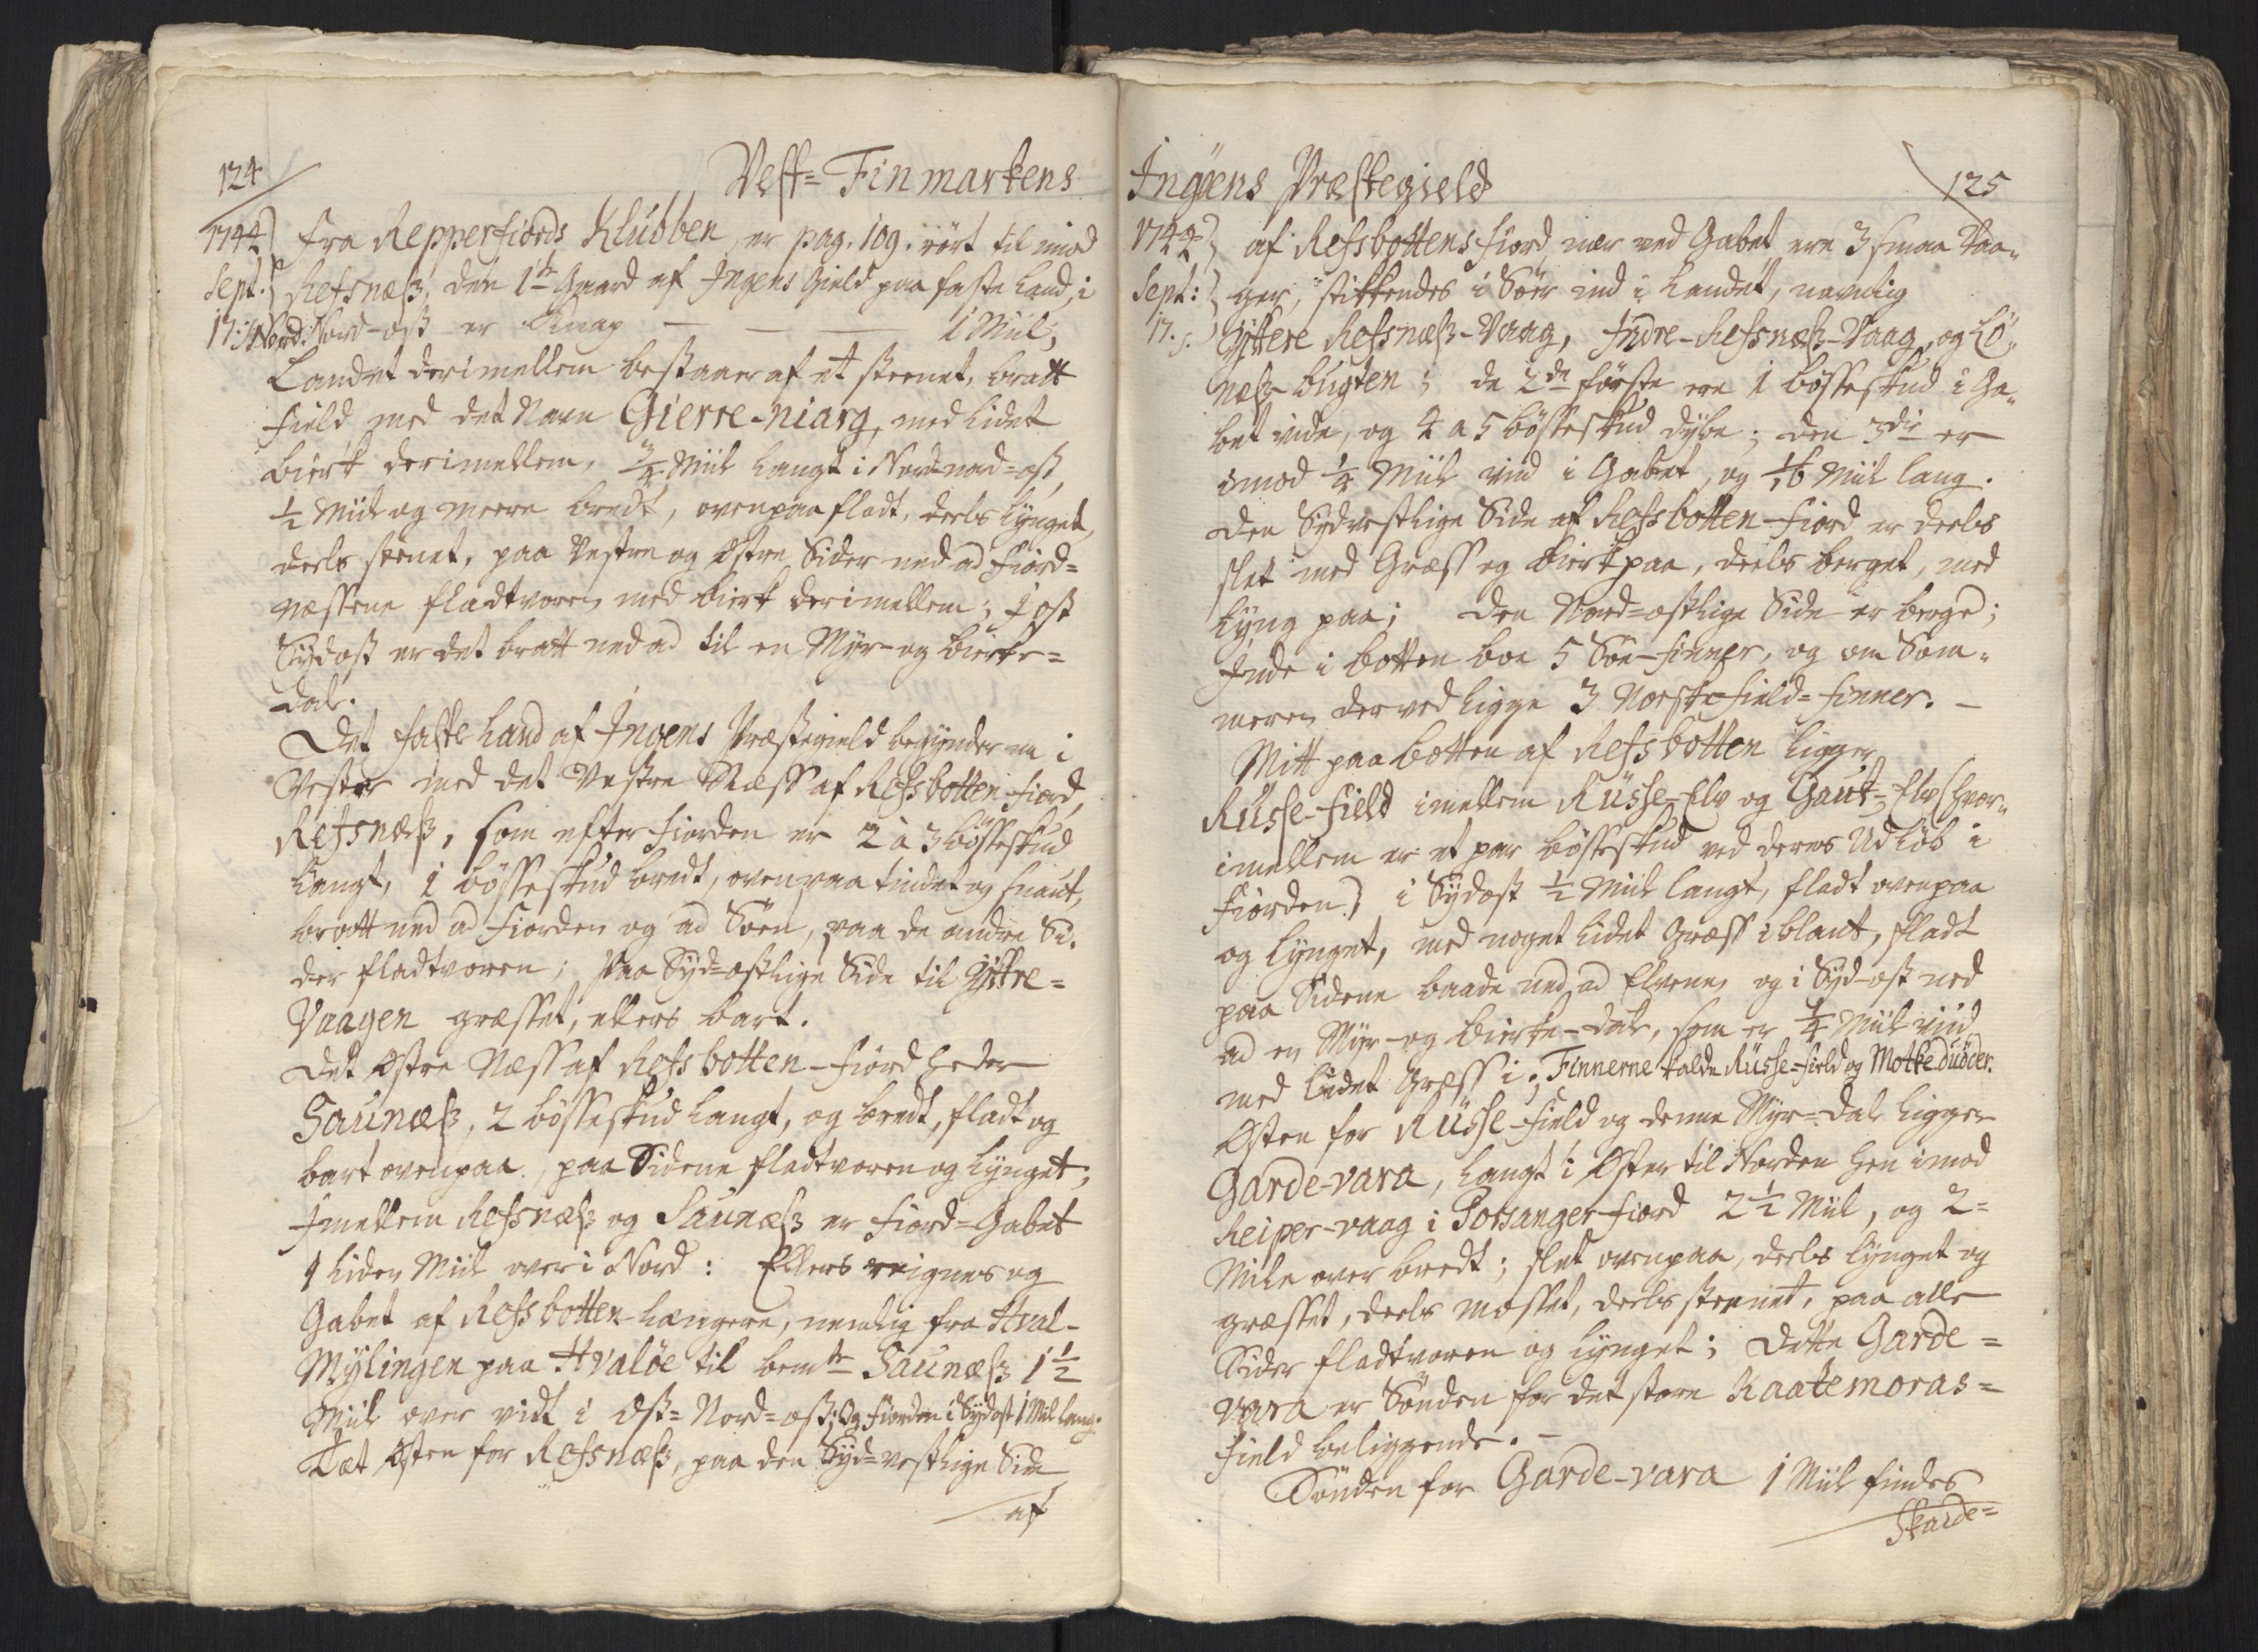 124
Vest= Finmarkens
1744 Fra Repperfiords Klubben, er pag. 109. rört til imod
Sept: Refsnæß, den 1te Gaard af Ingens Gield paa faste Land, i
17: Nord-Nord-ost er knap — — — 1 Miil;
Landet derimellem bestaaer af et steenet, bratt
Field med det Navn Gierre-niarg, med lidet
Birk derimellem, 3/4 Miil langt i Nordnord-ost,
1/2 Miil og meere bredt, ovenpaa fladt, deels lynget,
deels steenet, paa Vestre og Ostre Sider ned ad Fiord=
næssene fladtvoren med Birk derimellem; I ost
Sydost er det bratt ned ad til en Myr- og Birke=
dal.
Det faste Land af Ingens Præstegield begynder nu i
Vester med det Vestre Næss af Refsbotten-Fiord,
Refsnæß, som efter Fiorden er 2 à 3 bösseskud
langt, 1 bösseskud bredt, ovenpaa tindet og snaut,
bratt ned ad Fiorden og ad Söen, paa de andre Si-
der fladtvoren; Paa Syd-ostlige Side til Yttre=
Vaagen græsset, ellers bart.
Det Ostre Næss af Refsbotten-Fiord heder
Saunæß, 2 bösseskud langt, og bredt, fladt og
bart ovenpaa, paa Sidene fladtvoren og lynget;
Imellem Refsnæß og Saunæß er Fiord-Gabet
1 liden Miil over i Nord: Ellers reignes og
Gabet af Refsbotten længere, nemlig fra Hval-
Mylingen paa Hvalöe til bemte Saunæß 1 1/2
Miil over vidt i Ost= Nord=ost; Og Fiorden i Sydost 1 Miil lang.
Tæt Osten for Refsnæß, paa den Syd=vestlige Side
af
Ingens Præstegield
125
1744 af Refsbottens Fiord, nær ved Gabet ere 3 smaa Vaa=
Sept: ger, stikkendes i Söer ind i Landet, navnlig
17. Yttere Refsnæß-Vaag, Indre-Refsnæß-Vaag, og Lö=
næß-bugten; de 2de förste ere 1 bösseskud i Ga=
bet vide, og 4 a 5 bösseskud dybe; den 3die er
imod 1/4 Miil viid i Gabet, og 1/16 Miil lang.
Den Sydvestlige Side af Refsbotten-Fiord er deels
slet med Græss og Birk paa, deels berget, med
Lyng paa; Den Nord=ostlige Side er berge;
Inde i botten boe 5 Söe-Finner, og om Som=
meren derved ligge 3 Norske Field=Finner. —
Mitt paa Botten af Refsbotten ligger
Russe-Field imellem Russe-Elv og Gaut=Elv (hvor=
imellem er et par bösseskud ved deres Udlöb i
Fiorden) i Sydost 1/2 Miil langt, fladt ovenpaa
og lynget, med noget lidet Græss iblant, fladt
paa Sidene baade ned ad Elvene og i Syd-ost ned
ad en Myr- og Birke-dal, som er 1/4 Miil viid
med lidet Græss i; Finnerne kalde Russe=Field og Motkeduöder.
Osten for Russe-Field og denne Myr=Dal ligger
Garde-vara, langt i Oster til Norden hen imod
Reiper-vaag i Porsanger Fiord 2 1/2 Miil, og 2=
Mile over bredt; slet ovenpaa, deels lynget og
græsset, deels mosset, deels steenet, paa alle
Sider fladtvoren og lynget; Dette Garde=
vara er Sönden for det store Kaatemoras=
Field beliggende. —
Sönden for Garde-vara 1 Miil findes
Skaide=